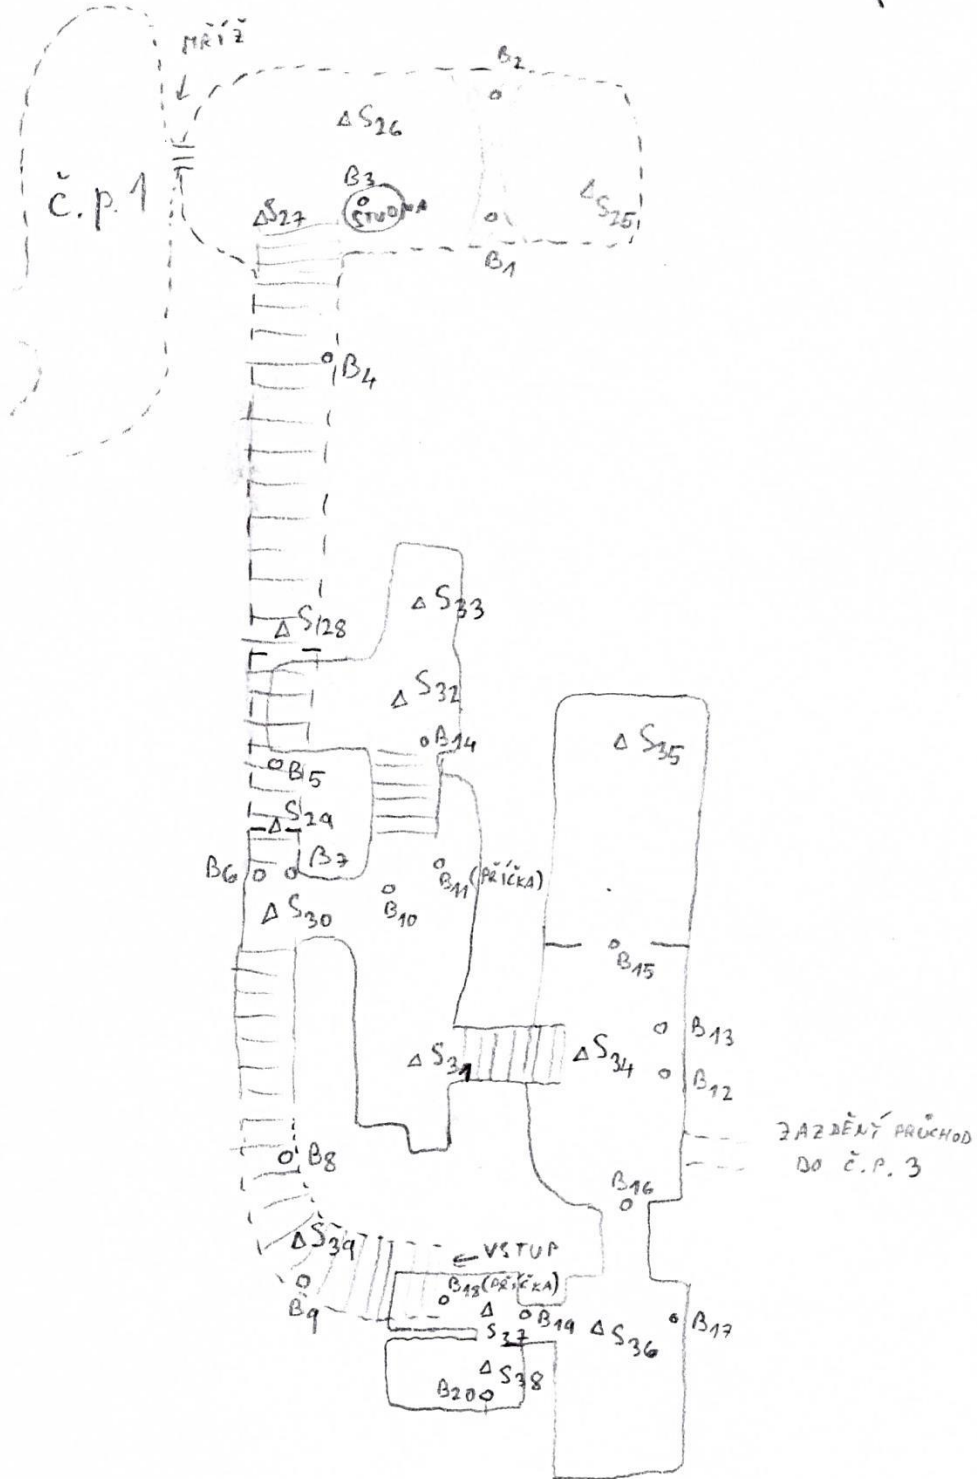 MŘÍŽ
B2
S26
č.p.1
B3
STUDNA
S27
S25
B1
B4
S33
S28
S32
B14
S35
B5
S29
B6
B7
B11 (PŘÍČKA)
B10
S30
B15
B13
S31
S34
B12
ZAZDĚNÝ PRŮCHOD
DO Č.P. 3
B8
B16
S39
VSTUP
B18 (PŘÍČKA)
B9
B19
S36
B17
S37
S38
B20